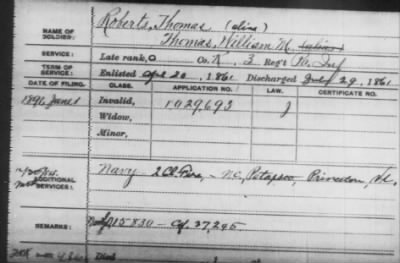 NAME OF SOLDIER:
Roberts, Thomas (alias)
Thomas, William M.
SERVICE:
Late rank, Co. K, 3 Reg't Pa. Inf
TERM OF SERVICE:
Enlisted Apl 20, 1861 Discharged July 29, 1861
DATE OF FILING. CLASS. APPLICATION NO. LAW. CERTIFICATE NO.
1896 June 1 Invalid, 1029,693 J
Widow,
Minor,
ADDITIONAL SERVICES:
Navy 2 Cl. Fire, N.C., Patapsco, Princeton,
REMARKS:
15830 37,295
Died